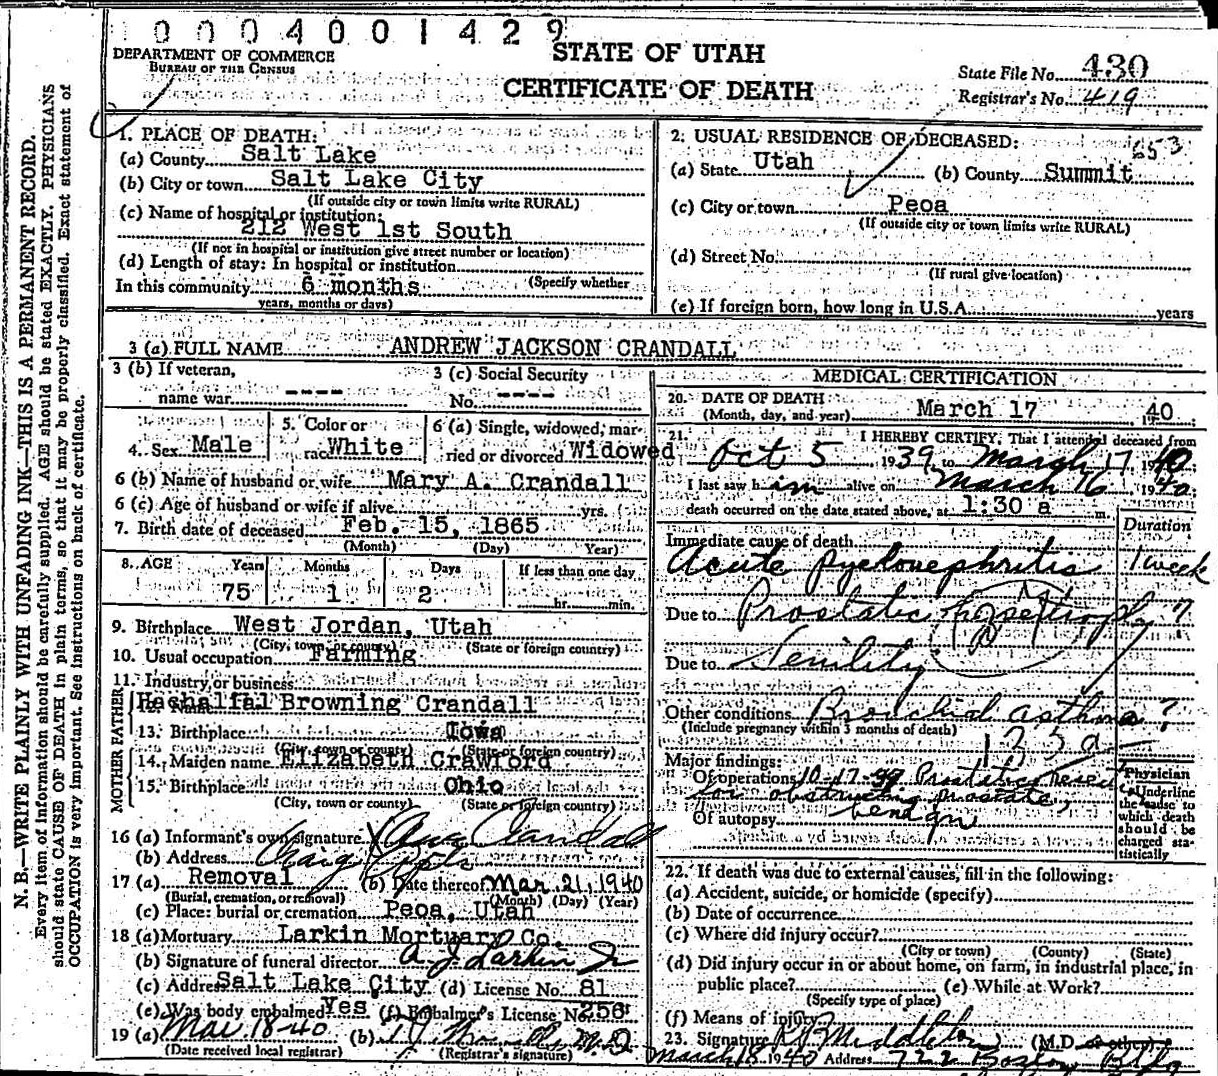 0 0 0 4 0 0 1 4 2 9
DEPARTMENT OF COMMERCE
BUREAU OF THE CENSUS
STATE OF UTAH
CERTIFICATE OF DEATH
State File No. 430
Registrar's No. 419
N. B.—WRITE PLAINLY WITH UNFADING INK—THIS IS A PERMANENT RECORD.
Every item of information should be carefully supplied. AGE should be stated EXACTLY. PHYSICIANS
should state CAUSE OF DEATH in plain terms, so that it may be properly classified. Exact statement of
OCCUPATION is very important. See instructions on back of certificate.
1. PLACE OF DEATH:
(a) County Salt Lake
(b) City or town Salt Lake City
(If outside city or town limits write RURAL)
(c) Name of hospital or institution:
212 West 1st South
(If not in hospital or institution give street number or location)
(d) Length of stay: In hospital or institution
In this community 6 months (Specify whether
years, months or days)
2. USUAL RESIDENCE OF DECEASED: 653
(a) State Utah (b) County Summit
(c) City or town Peoa
(If outside city or town limits write RURAL)
(d) Street No.
(If rural give location)
(e) If foreign born, how long in U.S.A. years
3 (a) FULL NAME ANDREW JACKSON CRANDALL
3 (b) If veteran, name war ----
3 (c) Social Security No. ----
4. Sex Male
5. Color or race White
6 (a) Single, widowed, married or divorced Widowed
6 (b) Name of husband or wife Mary A. Crandall
6 (c) Age of husband or wife if alive yrs.
7. Birth date of deceased Feb. 15, 1865
(Month) (Day) Year)
8. AGE Years Months Days If less than one day
75 1 2 hr. min.
9. Birthplace West Jordan, Utah
(City, town, or county) (State or foreign country)
10. Usual occupation Farming
11. Industry or business
12. Name Browning Crandall
13. Birthplace Iowa
(City, town or county) (State or foreign country)
14. Maiden name Elizabeth Crawford
15. Birthplace Ohio
(City, town or county) (State or foreign country)
MOTHER FATHER
16 (a) Informant's own signature Crandall
(b) Address
17 (a) Removal (b) Date thereof Mar. 21, 1940
(Burial, cremation, or removal) (Month) (Day) (Year)
(c) Place: burial or cremation Peoa, Utah
18 (a) Mortuary Larkin Mortuary Co.
(b) Signature of funeral director A. J. Larkin Jr
(c) Address Salt Lake City (d) License No. 81
(e) Was body embalmed Yes (f) Embalmer's License No. 256
19 (a) Mar 18-40 (b) M.D
(Date received local registrar) (Registrar's signature)
MEDICAL CERTIFICATION
20. DATE OF DEATH
(Month, day, and year) March 17 1940
21. I HEREBY CERTIFY, That I attended deceased from
Oct 5 1939, to March 17 1940
I last saw him alive on March 16 1940
death occurred on the date stated above, at 1:30 a m.
Duration
Immediate cause of death
Acute pyelonephritis 1 week
Due to Prostatic hypertrophy ?
Due to Senility
Other conditions Bronchial asthma ?
(Include pregnancy within 3 months of death)
Major findings:
Of operations 10-17-39 Prostatic
for obstructing prostate,
Of autopsy benign
Physician
Underline
the cause to
which death
should be
charged sta-
tistically
22. If death was due to external causes, fill in the following:
(a) Accident, suicide, or homicide (specify)
(b) Date of occurrence
(c) Where did injury occur?
(City or town) (County) (State)
(d) Did injury occur in or about home, on farm, in industrial place, in
public place? (e) While at Work?
(Specify type of place)
(f) Means of injury
23. Signature Middleton (M.D. or other)
March 18 1940 Address 722 Boston Bldg